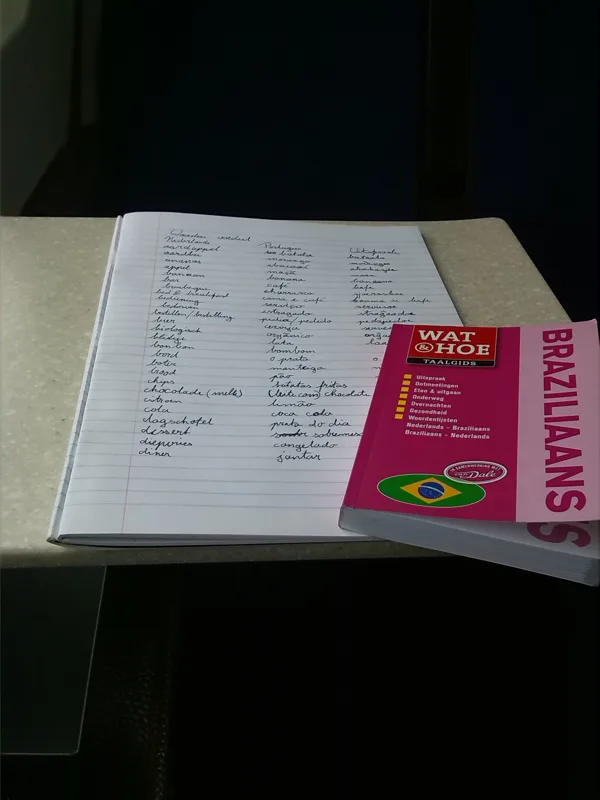 Woorden
Nederlands Portugees Uitspraak
aardappel batata batata
aardbei morango
ananas abacaxi
appel maçã
banaan banana banana
bar café kafe
barbeque churrasco
bed & breakfast cama e café
bediening serviço
bedorven estragado
bestellen/bestelling pedir/pedido
bier cerveja
biologisch orgânico
blikje lata
bonbon bombom
bord o prato o
boter manteiga
brood pão
chips batatas fritas
chocolade (melk) (leite com) chocolate
citroen limão
cola coca cola
dagschotel prato do dia
dessert sobremesa
diepvries congelado
diner jantar
WAT
& HOE
TAALGIDS
Uitspraak
Ontmoetingen
Eten & uitgaan
Onderweg
Overnachten
Gezondheid
Woordenlijsten
Nederlands - Braziliaans
Braziliaans - Nederlands
IN SAMENWERKING MET
van Dale
BRAZILIAANS